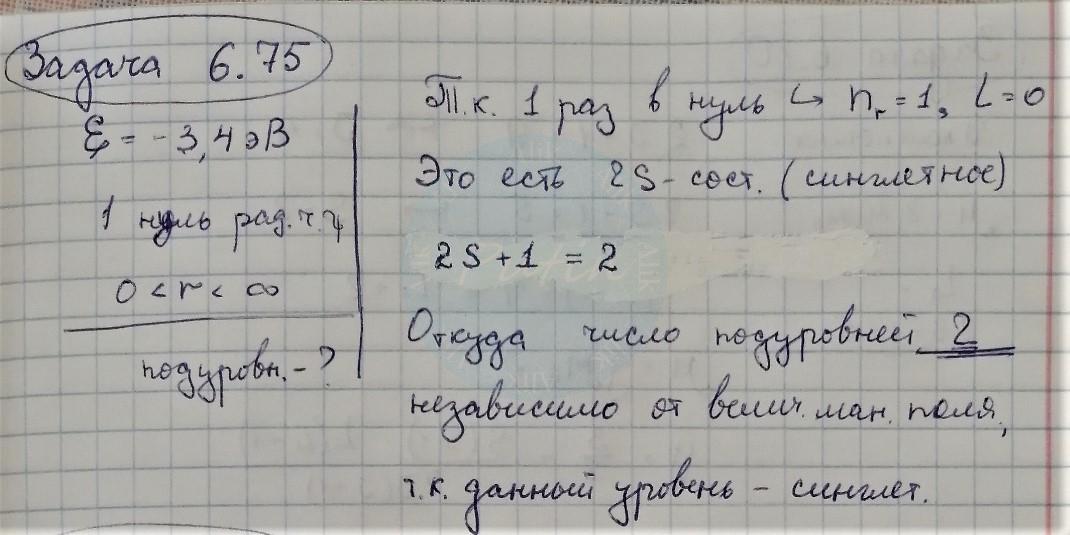 Задача 6.75
Ɛ = -3,4 эВ
1 нуль рад. ч. ψ
0 < r < ∞
подуровн. - ?
Т.к. 1 раз в нуль ↪ nᵣ = 1, L = 0
Это есть 2S - сост. (синглетное)
2S + 1 = 2
Откуда число подуровней 2
независимо от велич. маг. поля,
т.к. данный уровень - синглет.